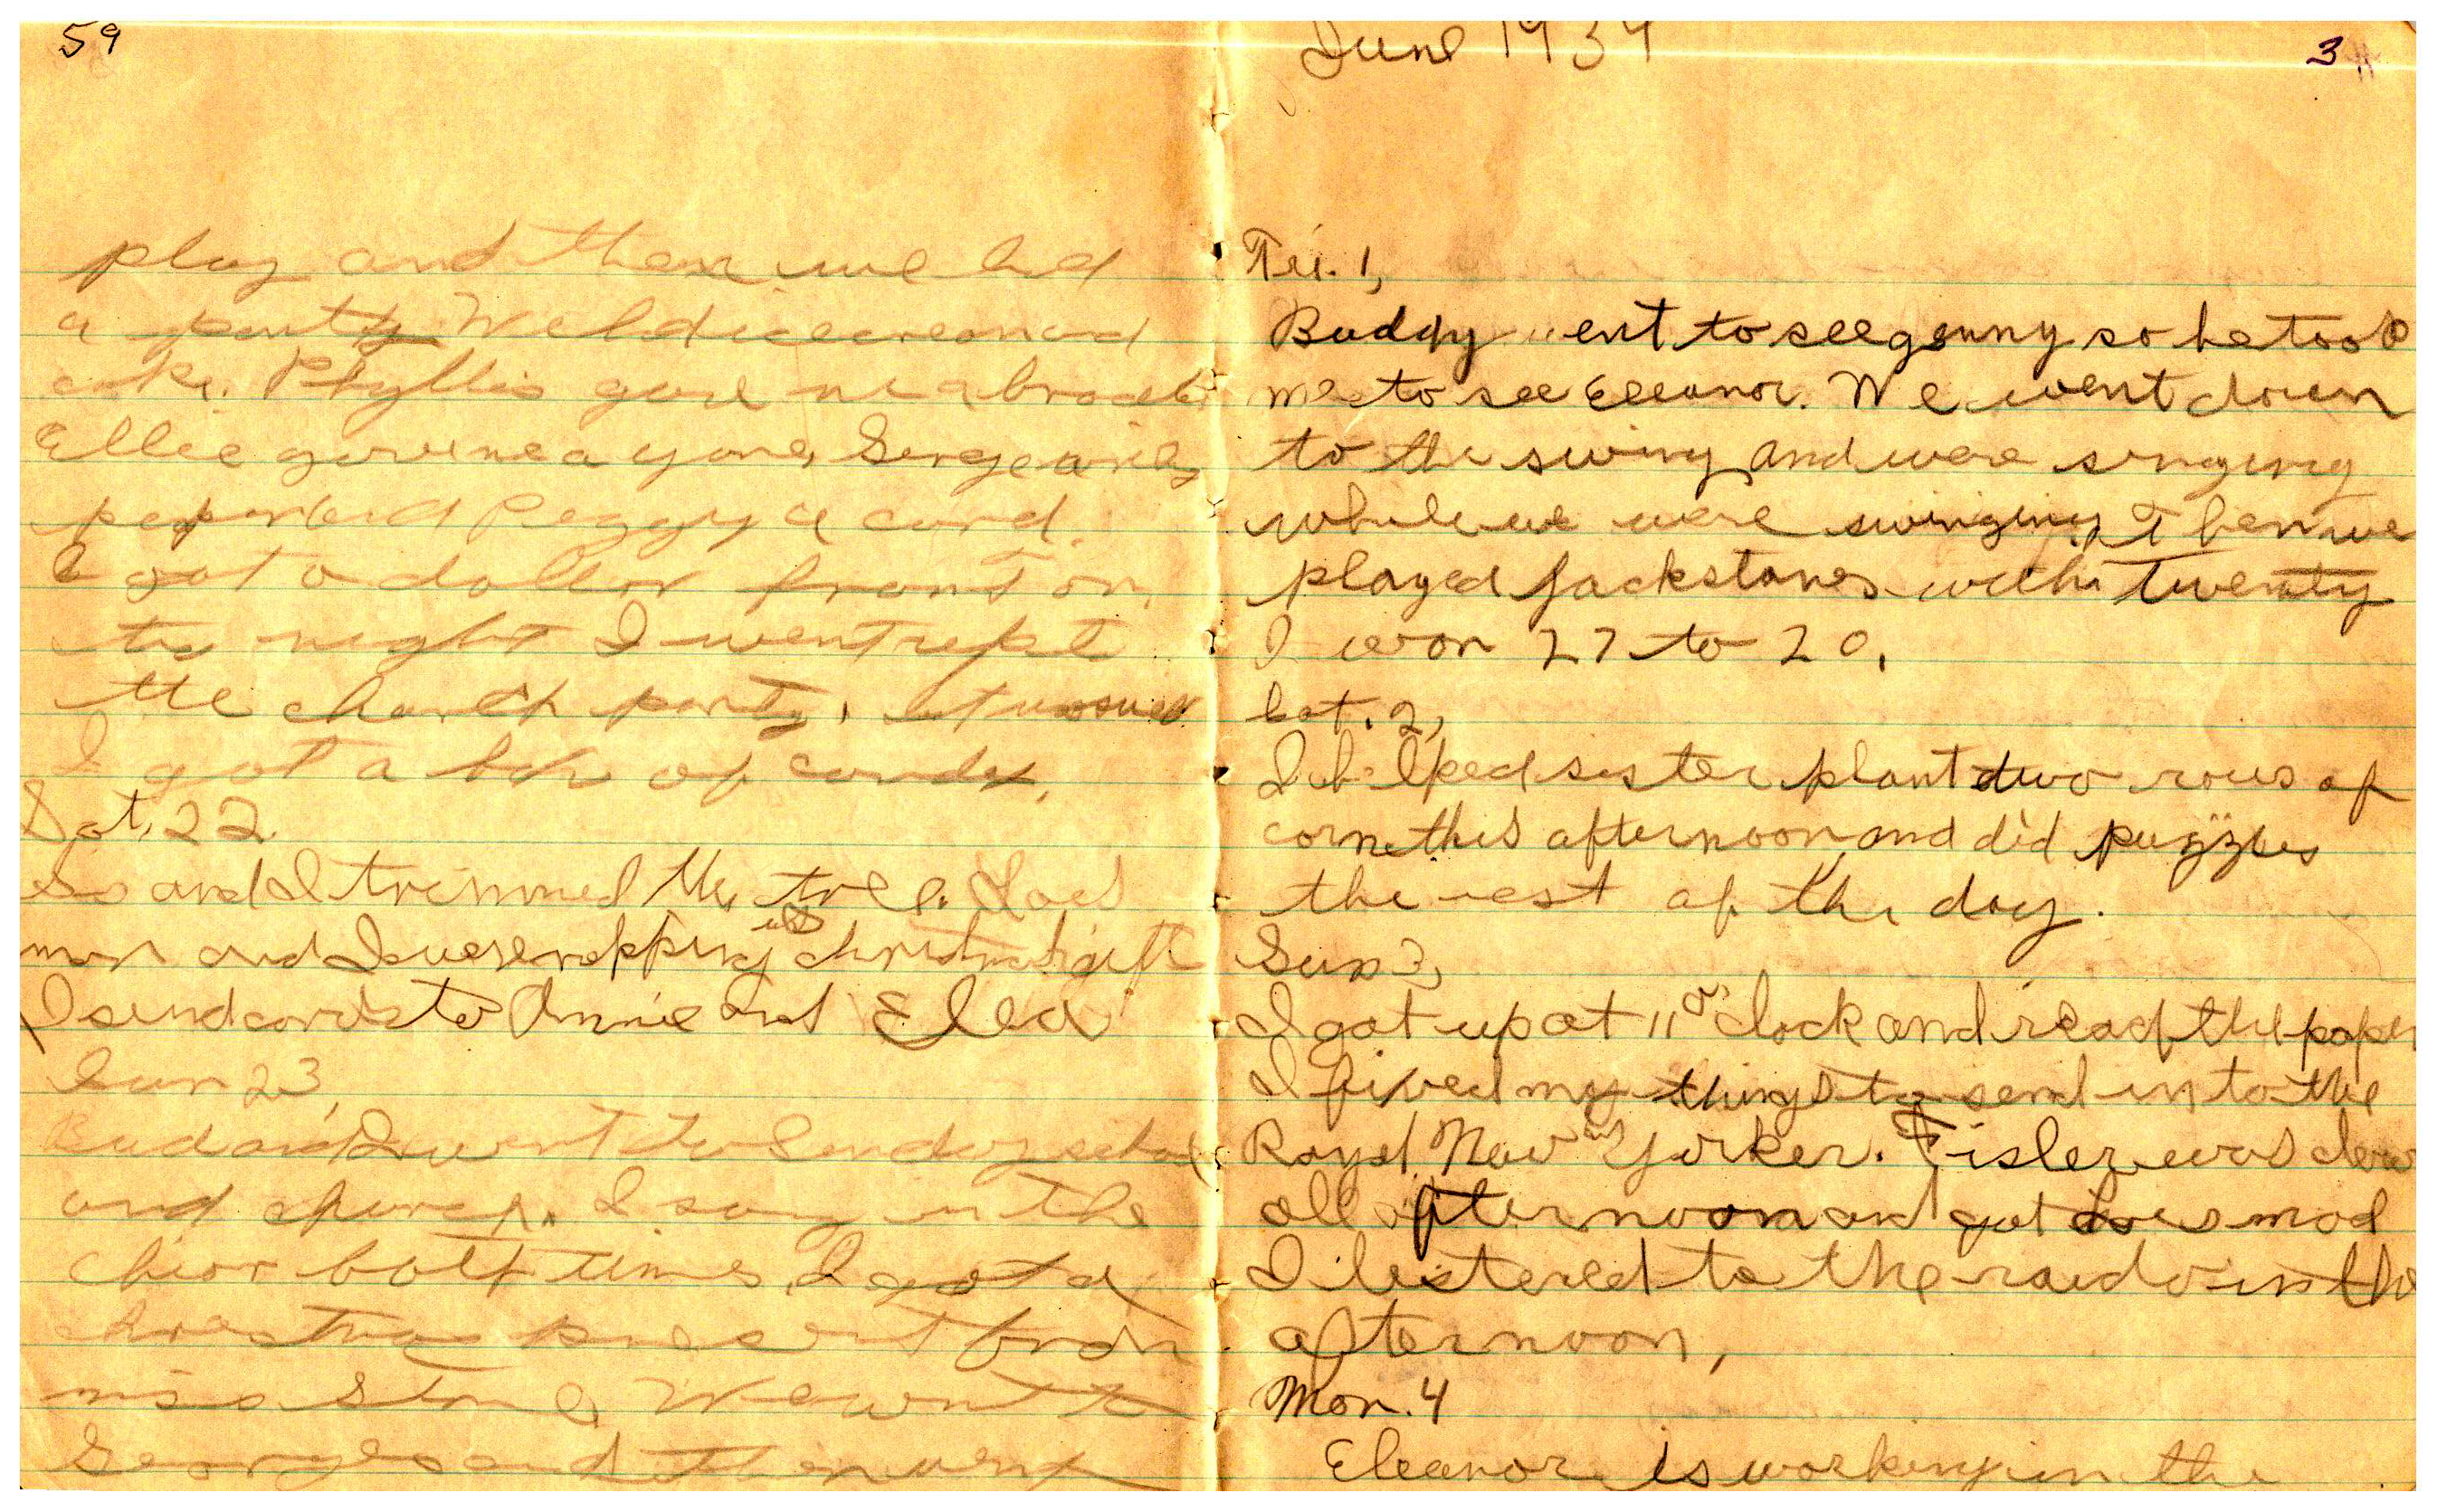 59
play and then we had
a party We had icecream and
cake. Phyllis gave me a
Ellie gave me a
paper and Peggy a card.
I got a dollar from
night I went
the church party.
I got a box of candy.
Sat. 22
Sis and I trimmed the tree. Lois
mom and I were rapping christmas gift
I send cards to Annie and Elea
Sun 23,
Bud and I went to Sunday school
and church. I sang in the
chior both times I got a
christmas present from
miss Stone, We went to
Georges and then went
June 1934
3
Fri. 1,
Buddy went to see genny so he took
me to see Eleanor. We went down
to the swing and were singing
while we were swinging Then we
played Jackstones with twenty
I won 27 to 20.
Sat. 2,
I helped sister plant two rows of
corn this afternoon and did puzzles
the rest of the day.
Sun 3,
I got up at 11 o'clock and read the paper
I fixed my things to send in to the
Royal New Yorker. Fisler was down
all afternoon and got Lois mad
I listened to the raido in the
afternoon,
Mon. 4
Eleanor is working in the